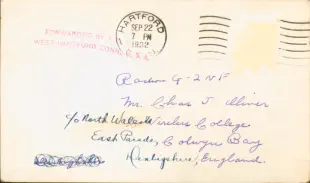 HARTFORD
SEP 22
7 PM
1932
FORWARDED BY
WEST HARTFORD CONN. U.S.A.
Radio G-2NF
Mr. Chas J Oliver
c/o North Wales Wireless College
East Parade, Colwyn Bay
Denbighshire, England.